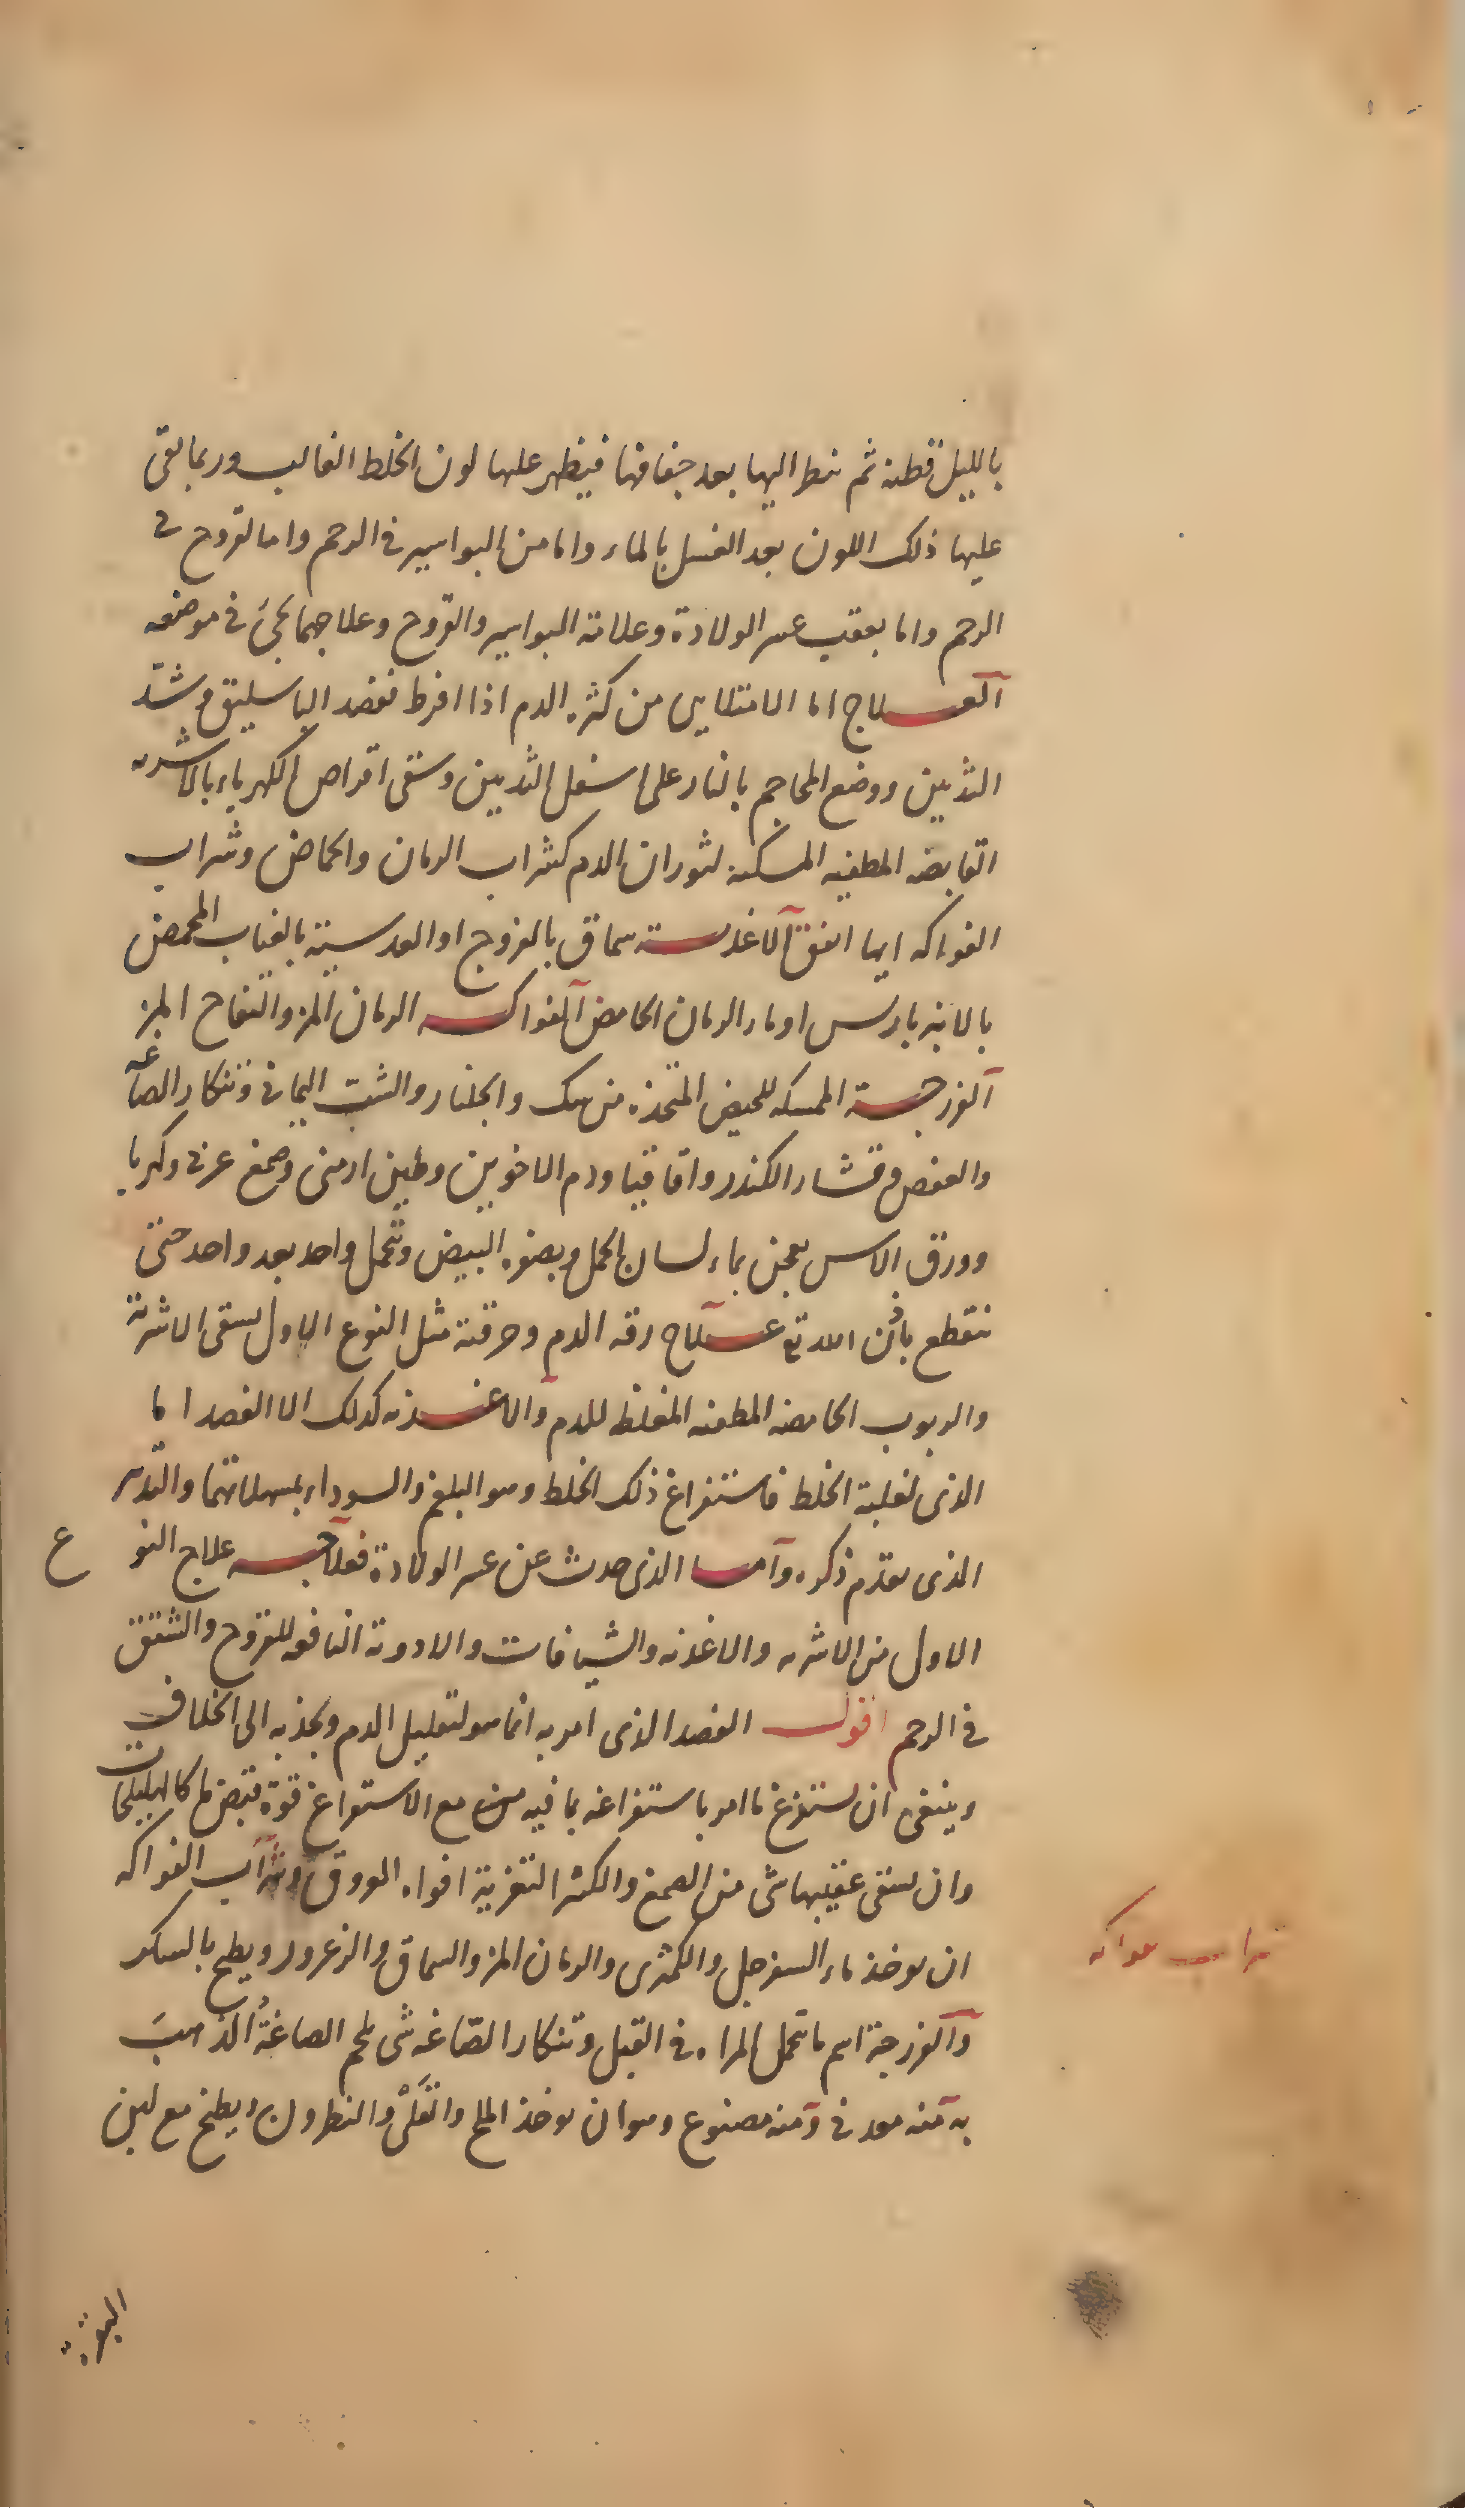 بالليل قطنة ثم ننظر اليها بعد جفافها فيظهر عليها لون الخلط الغالب وربما بقى
عليها ذلك اللون بعد الغسل بالماء واما من البواسير فى الرحم واما لقروح فى
الرحم واما بعقب عسر الولادة وعلامة البواسير والقروح وعلاجهما يجئ فى موضعه
العلاج اما الامتلايى من كثرة الدم اذا افرط فصد الباسليق وشد
الثديين ووضع المحاجم بالنار على اسفل الثديين وسقى اقراص الكهرباء بالاشربه
القابضه المطفيه المسكنه لثوران الدم كشراب الرمان والحماض وشراب
الفواكه ايها اتفق الاغذية سماق بالفروج او العدسية بالعناب المحمض
بالانبرباريس او ماء الرمان الحامض الفواكه الرمان المز والتفاح المز
الفرزجة الممسكه للحيض المتخذه من سك والجلنار والشب اليمانى وتنكار الصاغه
والعفص وقشار الكندر واقاقيا ودم الاخوين وطين ارمنى وصمغ عربى وكهربا
وورق الاس يعجن بماء لسان الحمل وبصفره البيض وتحمل واحد بعد واحد حتى
ينقطع باذن الله تع علاج رقه الدم وحرقته مثل النوع الاول يسقى الاشربة
والربوب الحامضه المطفيه المغلظه للدم والاغذيه كذلك الا الفصد اما
الذى لغلبة الخلط فاستفراغ ذلك الخلط وهو البلغم والسوداء بمسهلاتهما والتدبير
الذى تقدم ذكره واما الذى حدث عن عسر الولادة فعلاجه علاج النوع
الاول من الاشربه والاغذيه والشيافات والادوية النافعه للقروح والشقق
فى الرحم اقول الفصد الذى امر به انما هو لتقليل الدم وبجذبه الى الخلاف
وينبغى ان يستفرغ ما امر باستفراغه بما فيه مع الاستفراغ قوة قبض ما كالهليلجات
وان يسقى عقيبها شى من الصمغ والكثيرا لتغرية افواه العروق وشراب الفواكه
ان يوخذ ماء السفرجل والكمثرى والرمان المز والسماق والزعرور ويطبخ بالسكر
شراب فواكه
والفرزجة اسم ما تحمل المراه فى القبل وتنكار الصاغه شى يلحم الصاغة الذهب
به منه معدنى ومنه مصنوع وهو ان يوخذ الملح والقلى والنطرون ويطبخ مع لبن
البقر